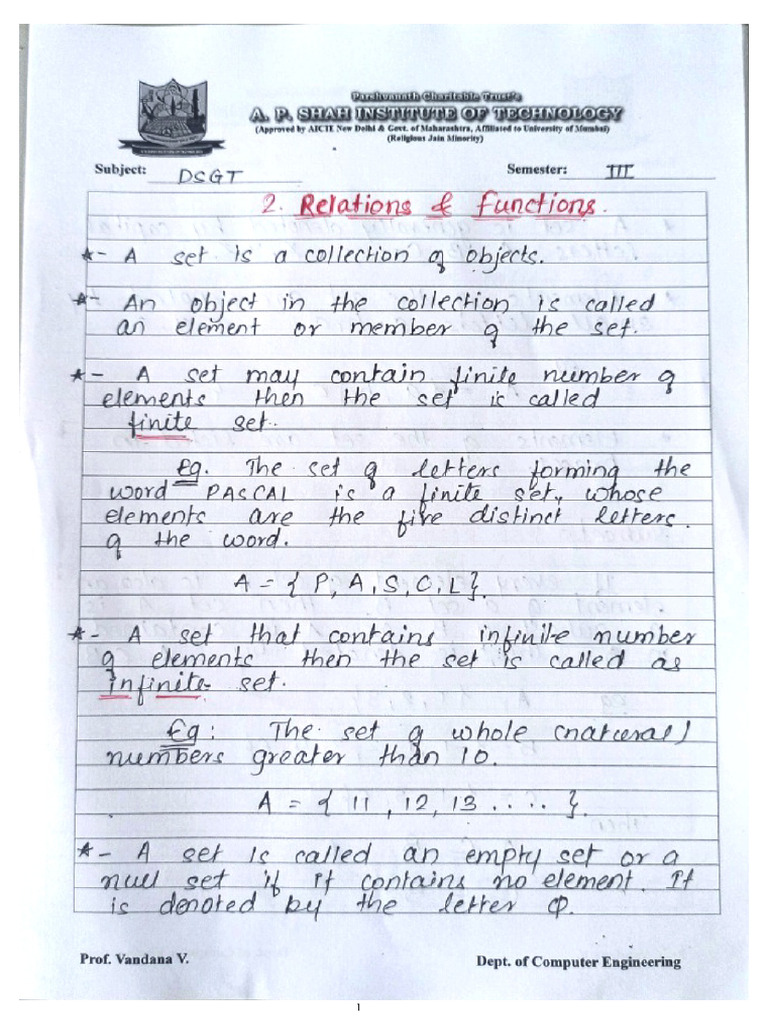 Parshvanath Charitable Trust's
A. P. SHAH INSTITUTE OF TECHNOLOGY
(Approved by AICTE New Delhi & Govt. of Maharashtra, Affiliated to University of Mumbai)
(Religious Jain Minority)
Subject: DSGT Semester: III
2. Relations & Functions.
*- A set is a collection of objects.
*- An object in the collection is called
an element or member of the set.
*- A set may contain finite number of
elements then the set is called
finite set.
Eg. The set of letters forming the
word PASCAL is a finite set, whose
elements are the five distinct letters.
of the word.
A = { P, A, S, C, L}.
*- A set that contains infinite number
of elements then the set is called as
infinite set.
Eg: The set of whole (natural)
numbers greater than 10.
A = { 11, 12, 13 .... }.
*- A set is called an empty set or a
null set if it contains no element. It
is denoted by the letter φ.
Prof. Vandana V. Dept. of Computer Engineering
1